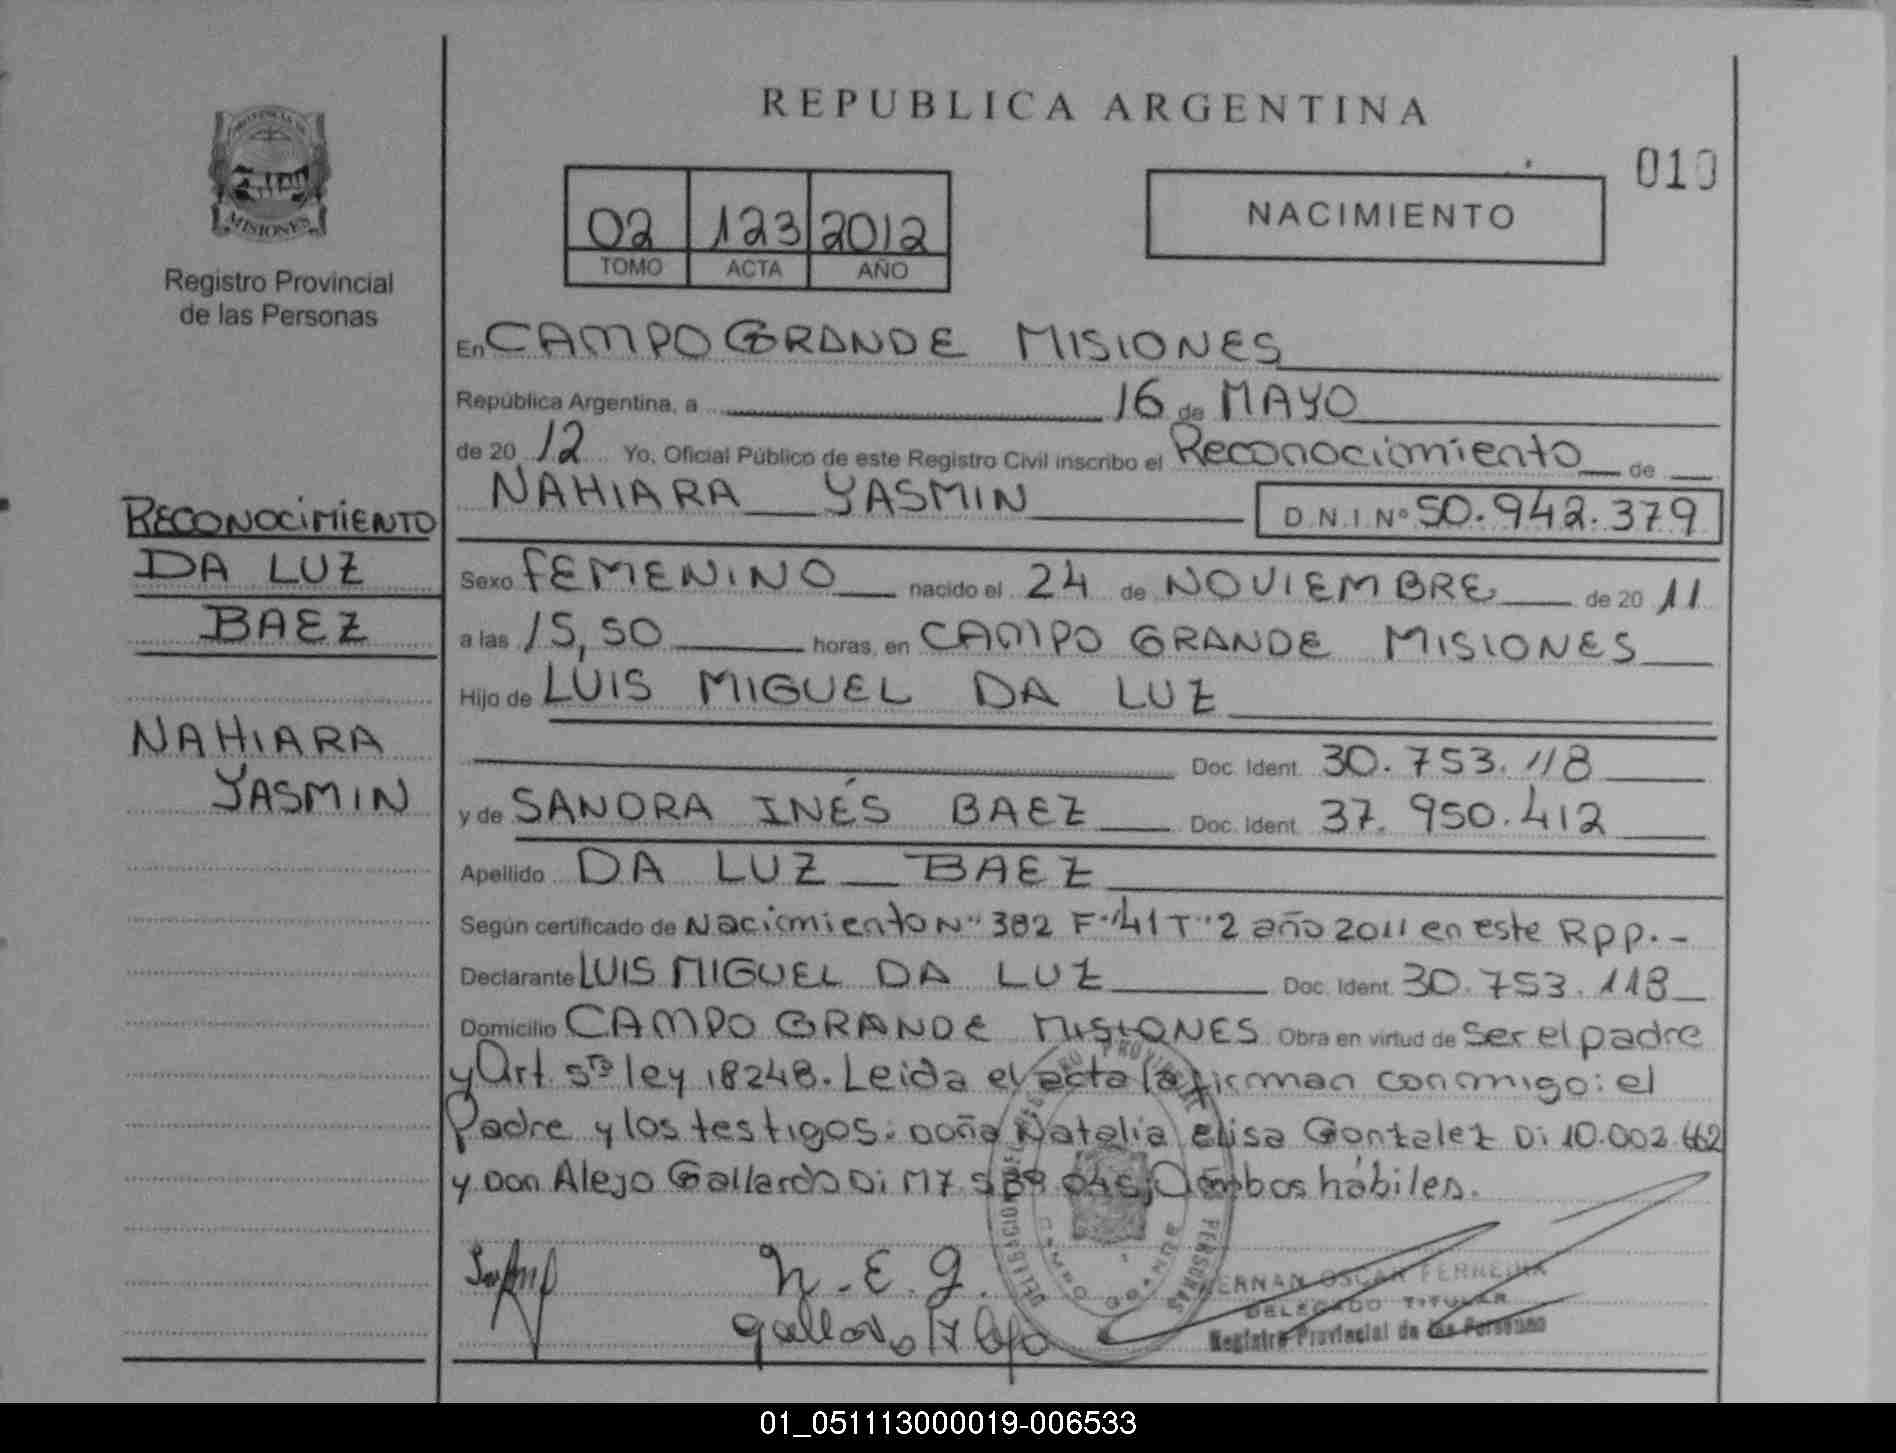 REPUBLICA ARGENTINA
010
PROVINCIA DE
MISIONES
Registro Provincial
de las Personas
02 123 2012
TOMO ACTA AÑO
NACIMIENTO
En CAMPO GRANDE MISIONES
República Argentina, a 16 de MAYO
de 20 12 Yo, Oficial Público de este Registro Civil inscribo el Reconocimiento de
NAHIARA YASMIN D.N.I Nº 50.942.379
RECONOCIMIENTO
DA LUZ
BAEZ
NAHIARA
YASMIN
Sexo FEMENINO nacido el 24 de NOVIEMBRE de 20 11
a las 15,50 horas, en CAMPO GRANDE MISIONES
Hijo de LUIS MIGUEL DA LUZ
Doc. Ident. 30.753.118
y de SANDRA INÉS BAEZ Doc. Ident. 37.950.412
Apellido DA LUZ BAEZ
Según certificado de Nacimiento Nº 382 Fº 141 Tº 2 año 2011 en este Rpp.-
Declarante LUIS MIGUEL DA LUZ Doc. Ident. 30.753.118
Domicilio CAMPO GRANDE MISIONES Obra en virtud de ser el padre
y Art 5to ley 18248. Leida el acta la firman conmigo: el
Padre y los testigos. doña Natalia Elisa Gonzalez Di 10.002.662
y Don Alejo Gallardo Di M7 Ambos hábiles.
N.E.G.
Gallardo Alejo
HERNAN OSCAR FERREIRA
DELEGADO TITULAR
Registro Provincial de las Personas
01_051113000019-006533